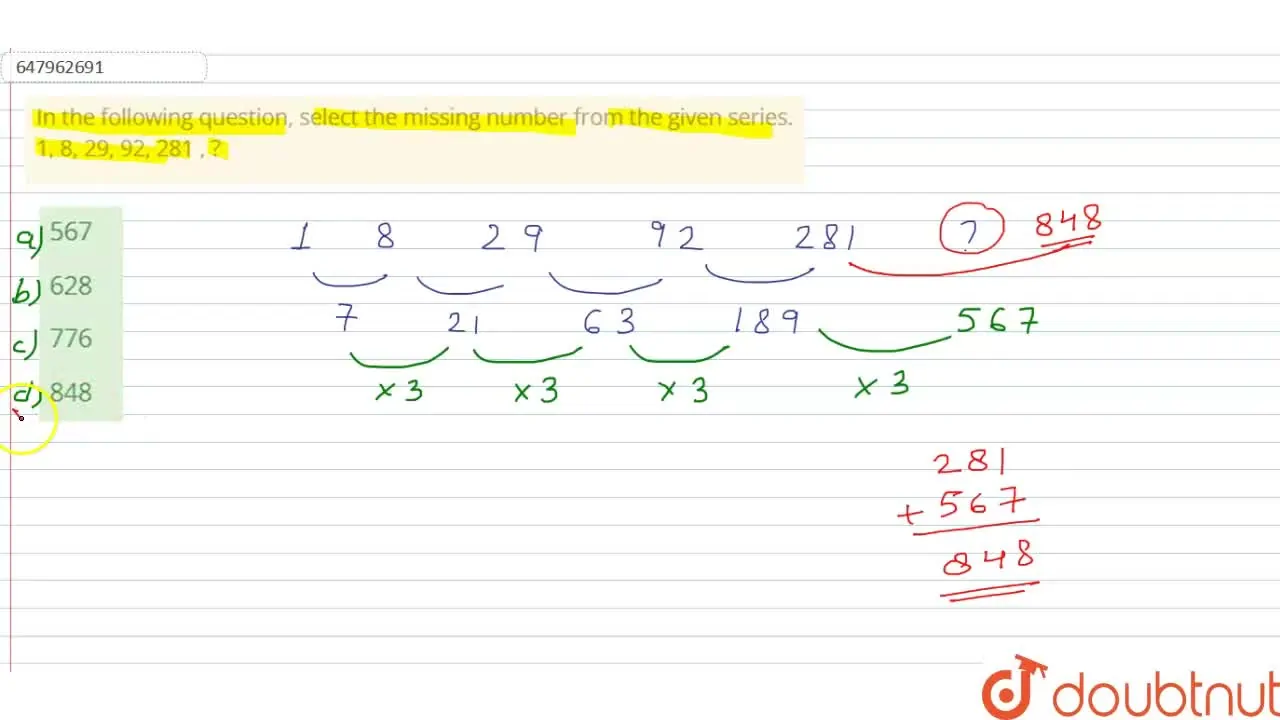 647962691
In the following question, select the missing number from the given series.
1, 8, 29, 92, 281 , ?
a) 567
b) 628
c) 776
d) 848
1 8 29 92 281 ? 848
7 21 63 189 567
×3 ×3 ×3 ×3
281
+ 567
848
doubtnut